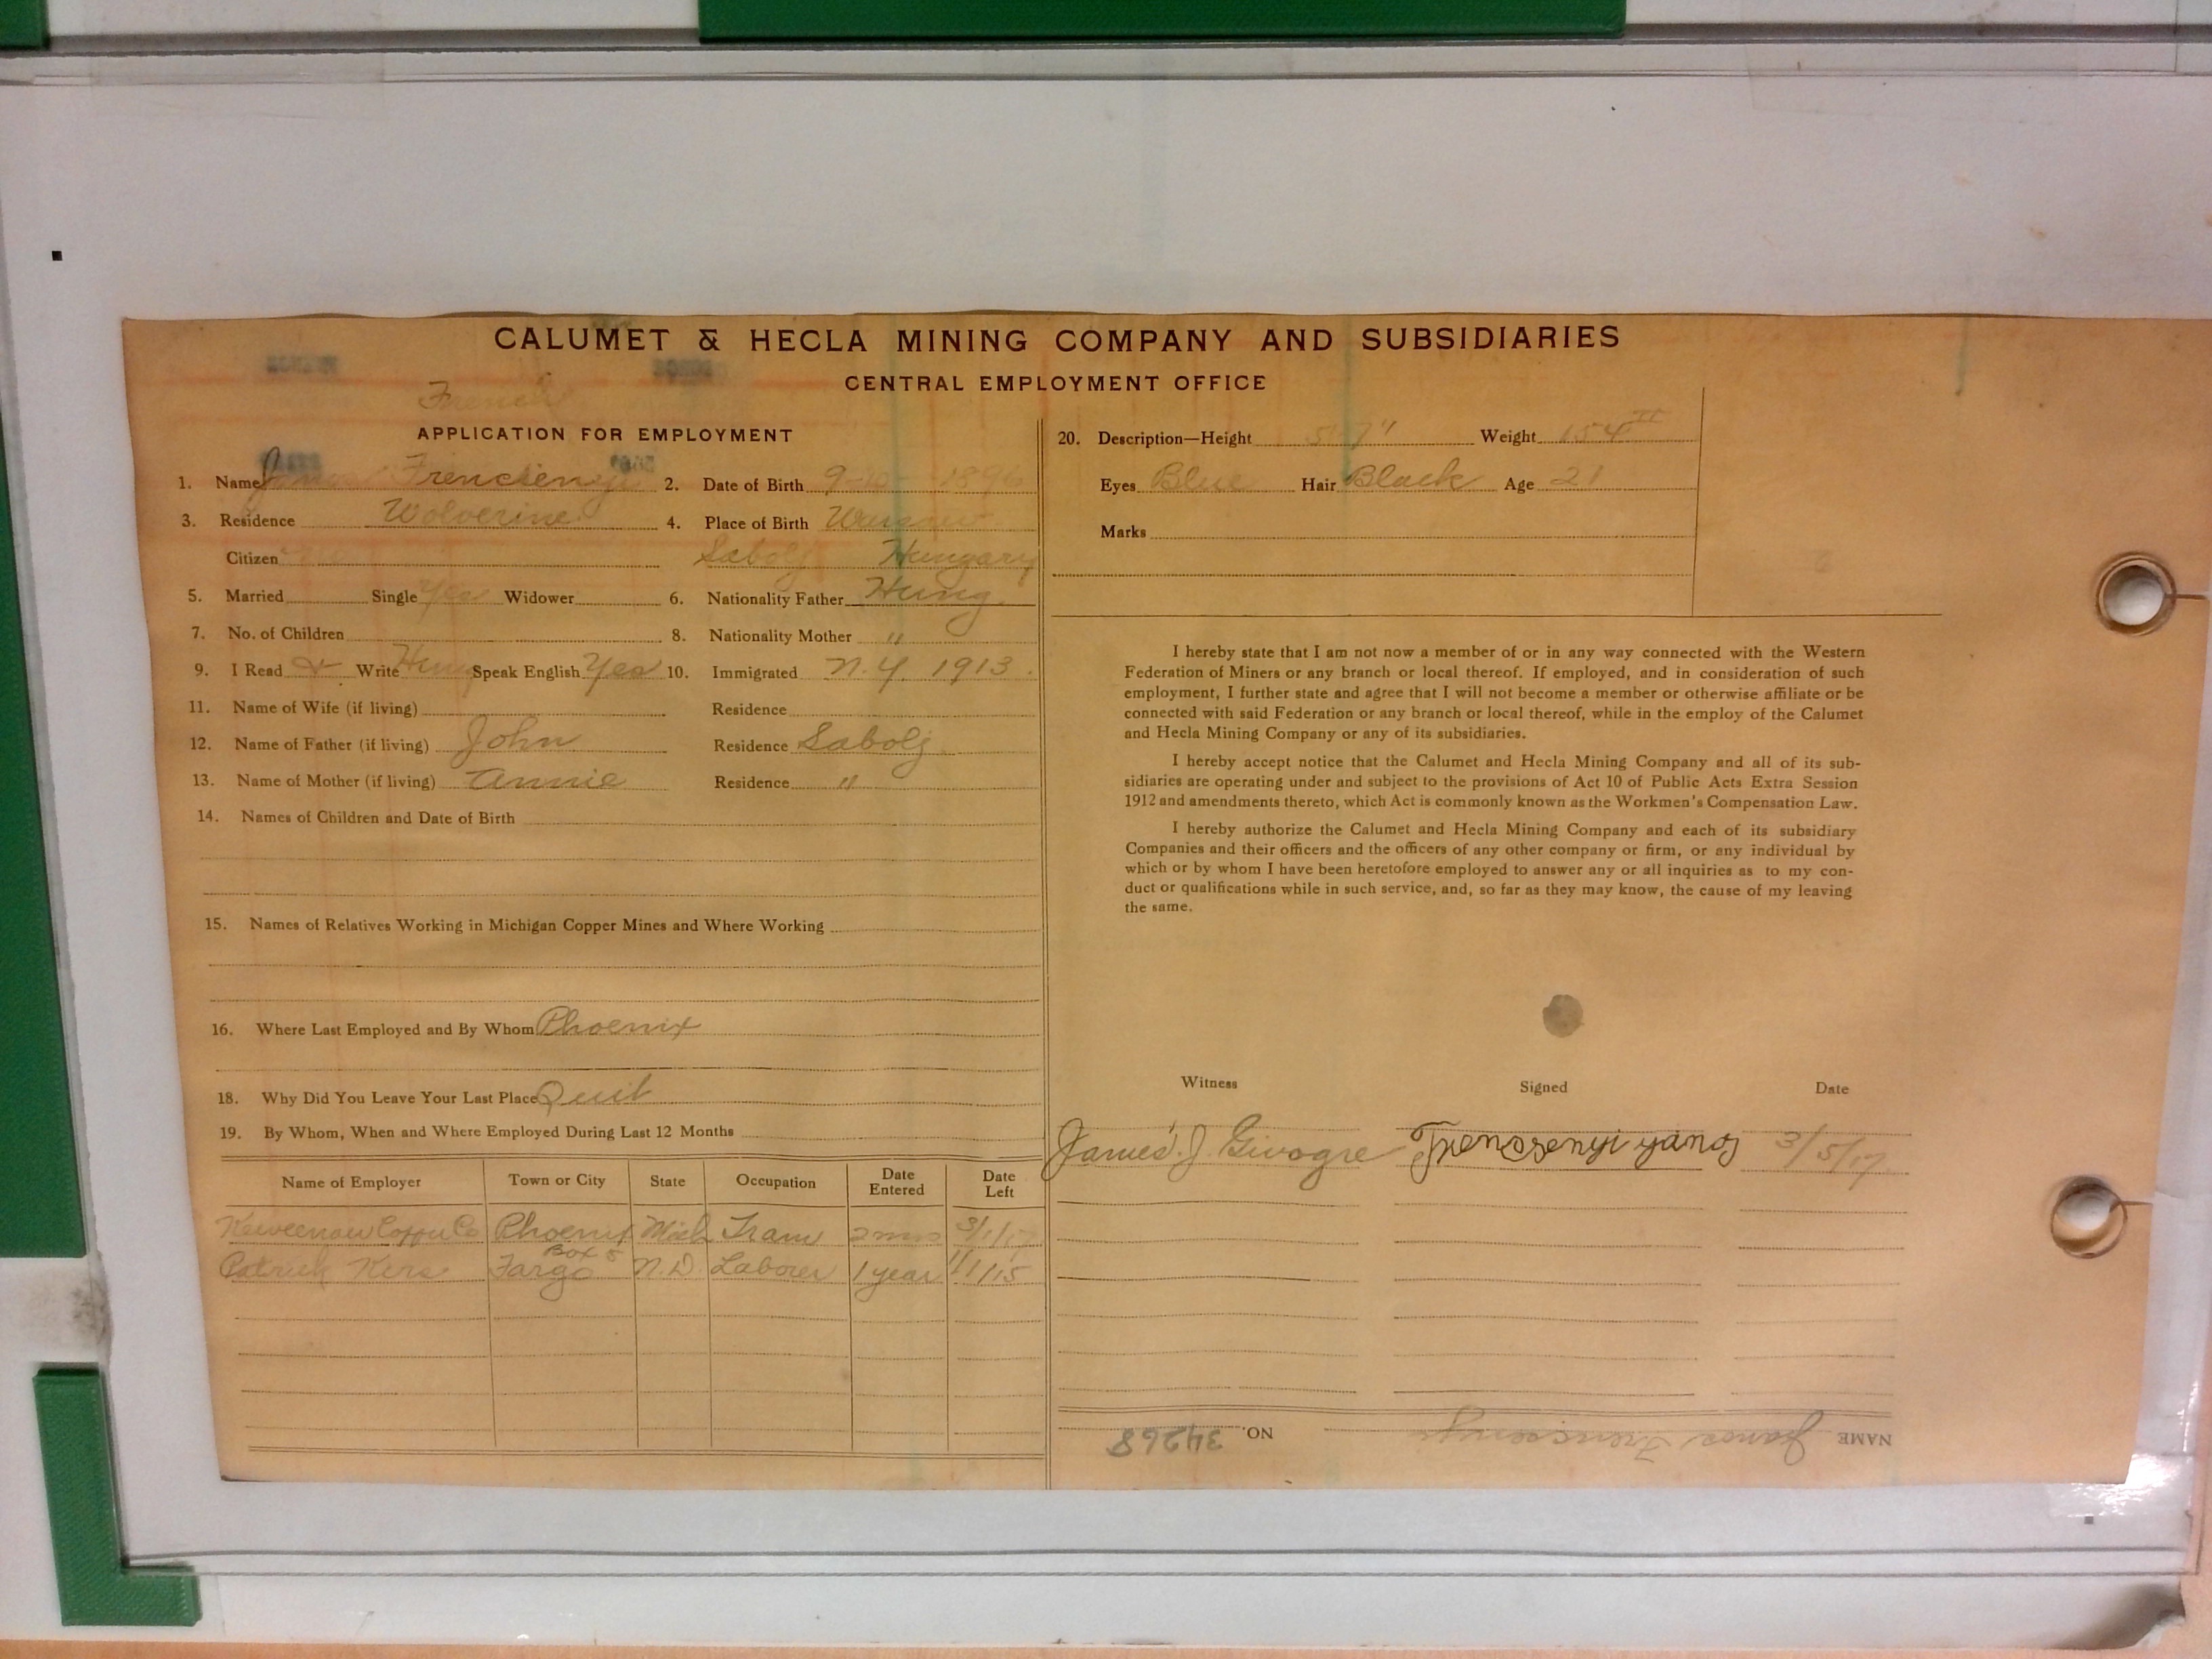 CALUMET & HECLA MINING COMPANY AND SUBSIDIARIES
CENTRAL EMPLOYMENT OFFICE
French
APPLICATION FOR EMPLOYMENT
1. Name Frencsenyi 2. Date of Birth 9-10- 1896
3. Residence Wolverine 4. Place of Birth
Citizen Sabolj Hungary
5. Married Single Yes Widower 6. Nationality Father Hung
7. No. of Children 8. Nationality Mother "
9. I Read & Write Hung Speak English Yes 10. Immigrated N.Y. 1913.
11. Name of Wife (if living) Residence
12. Name of Father (if living) John Residence Sabolj
13. Name of Mother (if living) Annie Residence "
14. Names of Children and Date of Birth
15. Names of Relatives Working in Michigan Copper Mines and Where Working
16. Where Last Employed and By Whom Phoenix
18. Why Did You Leave Your Last Place Quit
19. By Whom, When and Where Employed During Last 12 Months
Name of Employer Town or City State Occupation Date Entered Date Left
Keweenaw Copper Co Phoenix Mich Tram 2 mos 3/1/17
Box 5
Patrick Fargo N.D. Laborer 1 year 1/1/15
20. Description—Height 5'-7" Weight 154
Eyes Blue Hair Black Age 21
Marks
I hereby state that I am not now a member of or in any way connected with the Western
Federation of Miners or any branch or local thereof. If employed, and in consideration of such
employment, I further state and agree that I will not become a member or otherwise affiliate or be
connected with said Federation or any branch or local thereof, while in the employ of the Calumet
and Hecla Mining Company or any of its subsidiaries.
I hereby accept notice that the Calumet and Hecla Mining Company and all of its sub-
sidiaries are operating under and subject to the provisions of Act 10 of Public Acts Extra Session
1912 and amendments thereto, which Act is commonly known as the Workmen's Compensation Law.
I hereby authorize the Calumet and Hecla Mining Company and each of its subsidiary
Companies and their officers and the officers of any other company or firm, or any individual by
which or by whom I have been heretofore employed to answer any or all inquiries as to my con-
duct or qualifications while in such service, and, so far as they may know, the cause of my leaving
the same.
Witness Signed Date
James J Givogre Frencsenyi yanos 3/5/17
NAME Janos Frencsenyi NO. 34268